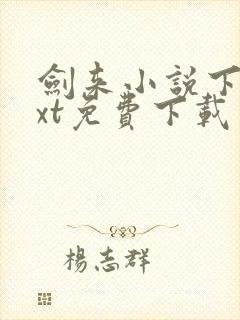 劍来小說下
xt免費下載
楊志群